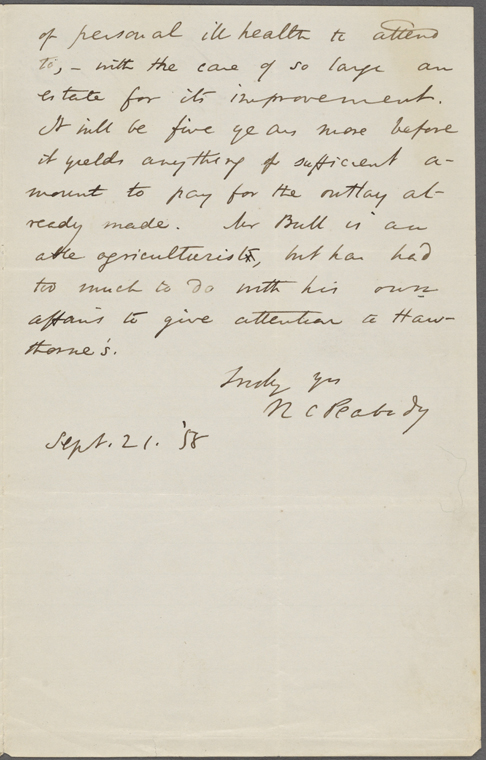 of personal ill health to attend
to, - with the care of so large an
estate for its improvement.
It will be five years more before
it yields anything of sufficient a-
mount to pay for the outlay al-
ready made. Mr Bull is an
able agriculturist, but has had
too much to do with his own
affairs to give attention to Haw-
thorne's.
Truly yrs
N C Peabody
Sept. 21. '58